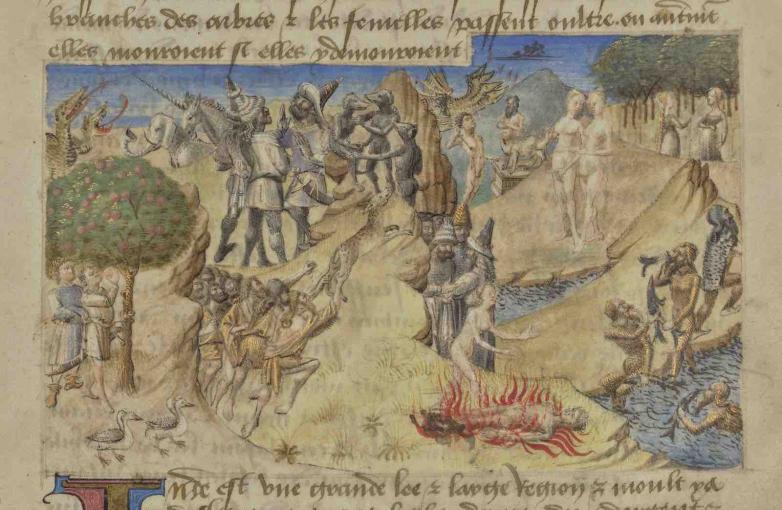 branches des arbres & les femelles passent oultre. ou autmt
elles mouroient se elles y demouroient
Inde est vne grande lee & large Region & moult ya